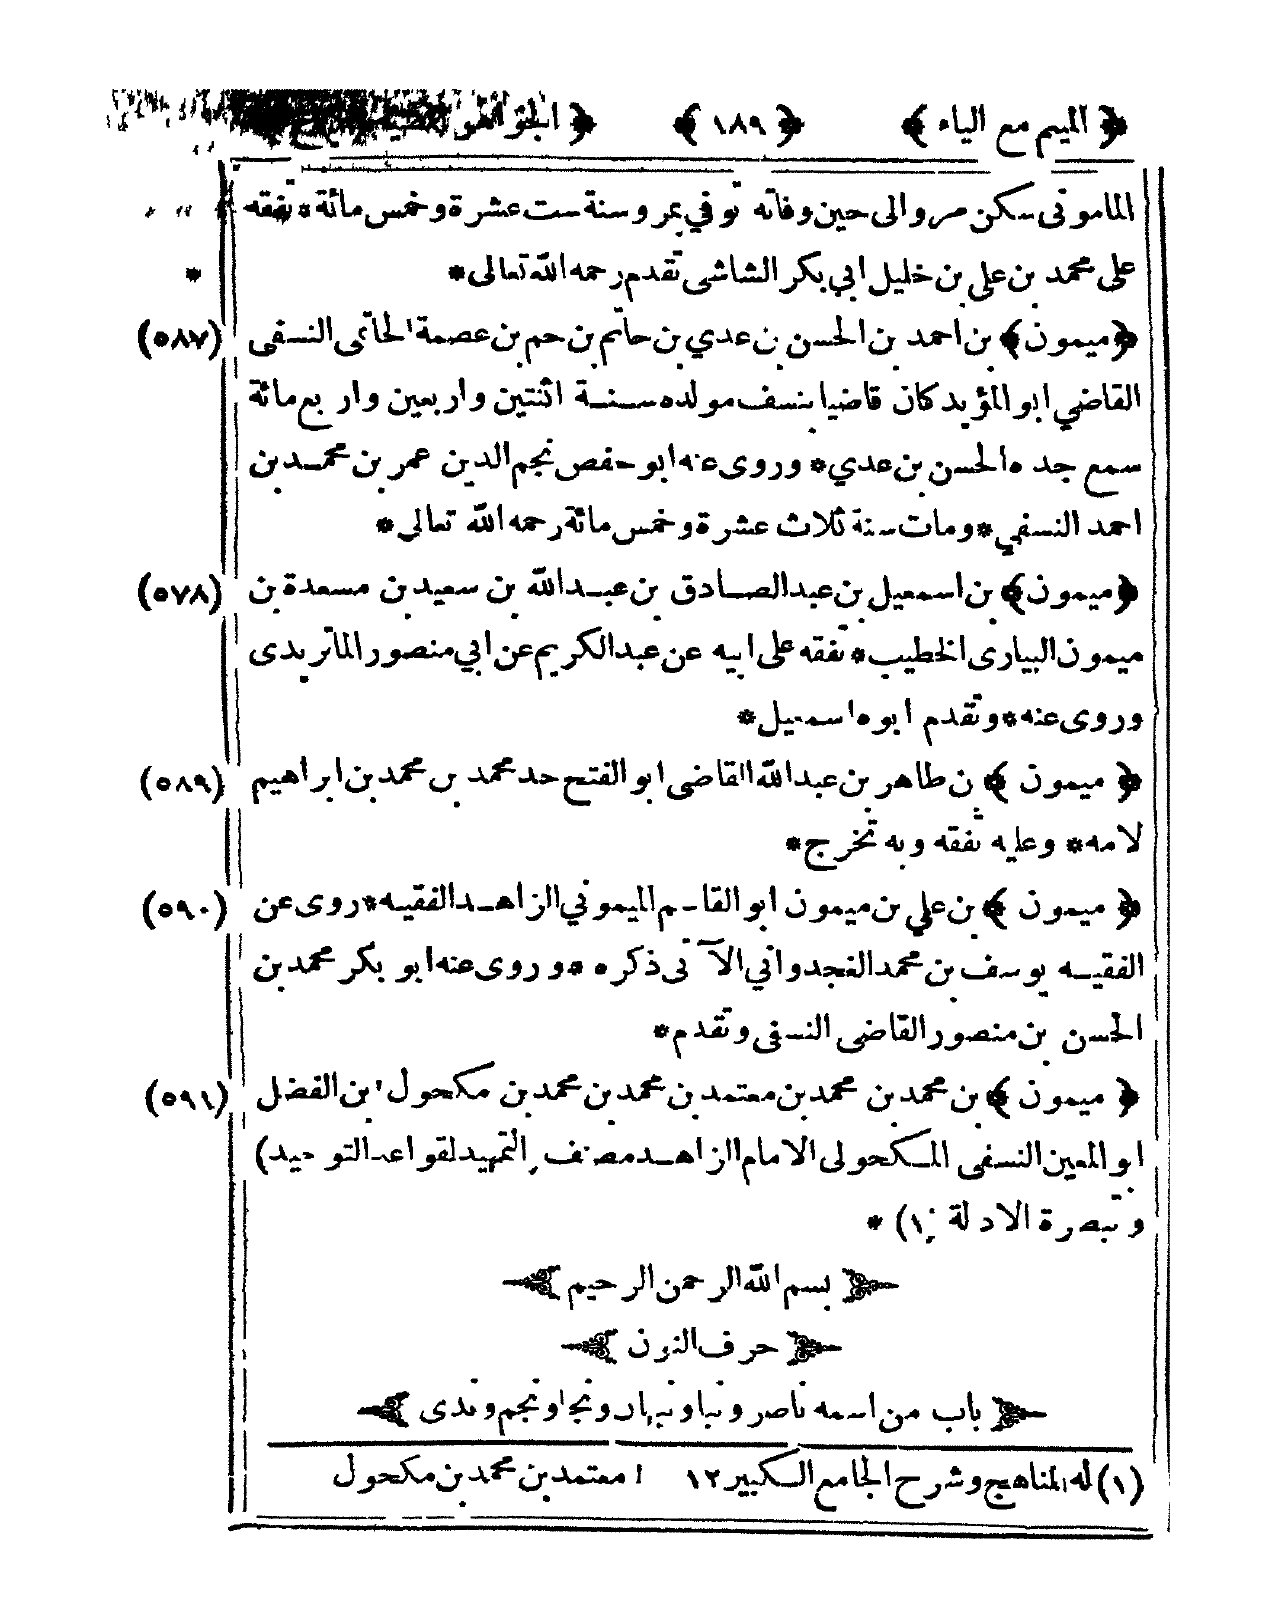 ﴿ الميم مع الياء ﴾ ﴿ ١٨٩ ﴾ ﴿ الجواهر
المامونى سكن مرو الى حين وفاته توفي بمرو سنة ست عشرة وخمس مائة * تفقه
على محمد بن علي بن خليل ابي بكر الشاشى تقدم رحمه الله تعالى *
﴿ ميمون ﴾ بن احمد بن الحسن بن عدي بن حاتم بن حم بن عصمة الحاتمى النسفى (٥٨٧)
القاضي ابو المؤيد كان قاضيا بنسف مولده سنة اثنتين واربعين واربع مائة
سمع جده الحسن بن عدي * وروى عنه ابو حفص نجم الدين عمر بن محمد بن
احمد النسفي * ومات سنة ثلاث عشرة وخمس مائة رحمه الله تعالى *
﴿ ميمون ﴾ بن اسمعيل بن عبد الصادق بن عبد الله بن سعيد بن مسعدة بن (٥٧٨)
ميمون البيارى الخطيب * تفقه على ابيه عن عبد الكريم عن ابي منصور الماتريدى
وروى عنه * وتقدم ابوه اسمعيل *
﴿ ميمون ﴾ بن طاهر بن عبد الله القاضى ابو الفتح جد محمد بن محمد بن ابراهيم (٥٨٩)
لامه * وعليه تفقه وبه تخرج *
﴿ ميمون ﴾ بن علي بن ميمون ابو القاسم الميموني الزاهد الفقيه * روى عن (٥٩٠)
الفقيه يوسف بن محمد الغجدواني الآتى ذكره * وروى عنه ابو بكر محمد بن
الحسن بن منصور القاضى النسفى وتقدم *
﴿ ميمون ﴾ بن محمد بن محمد بن معتمد بن محمد بن محمد بن مكحول ا بن الفضل (٥٩١)
ابو المعين النسفى المكحولى الامام الزاهد مصنف (التمهيد لقواعد التوحيد)
و (تبصرة الادلة) (١) *
بسم الله الرحمن الرحيم
حرف النون
باب من اسمه ناصر ونبا ونبهان ونجا ونجم وندى
(١) له المناهج وشرح الجامع الكبير ١٢ ا معتمد بن محمد بن مكحول